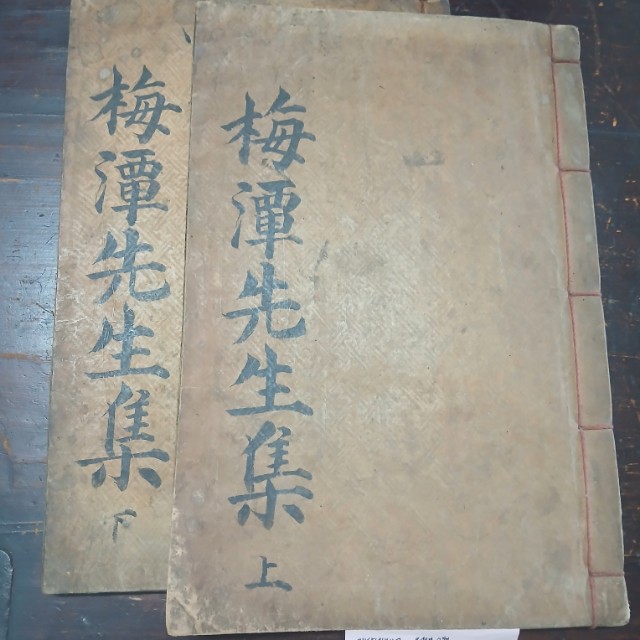 梅潭先生集
上
梅潭先生集
下